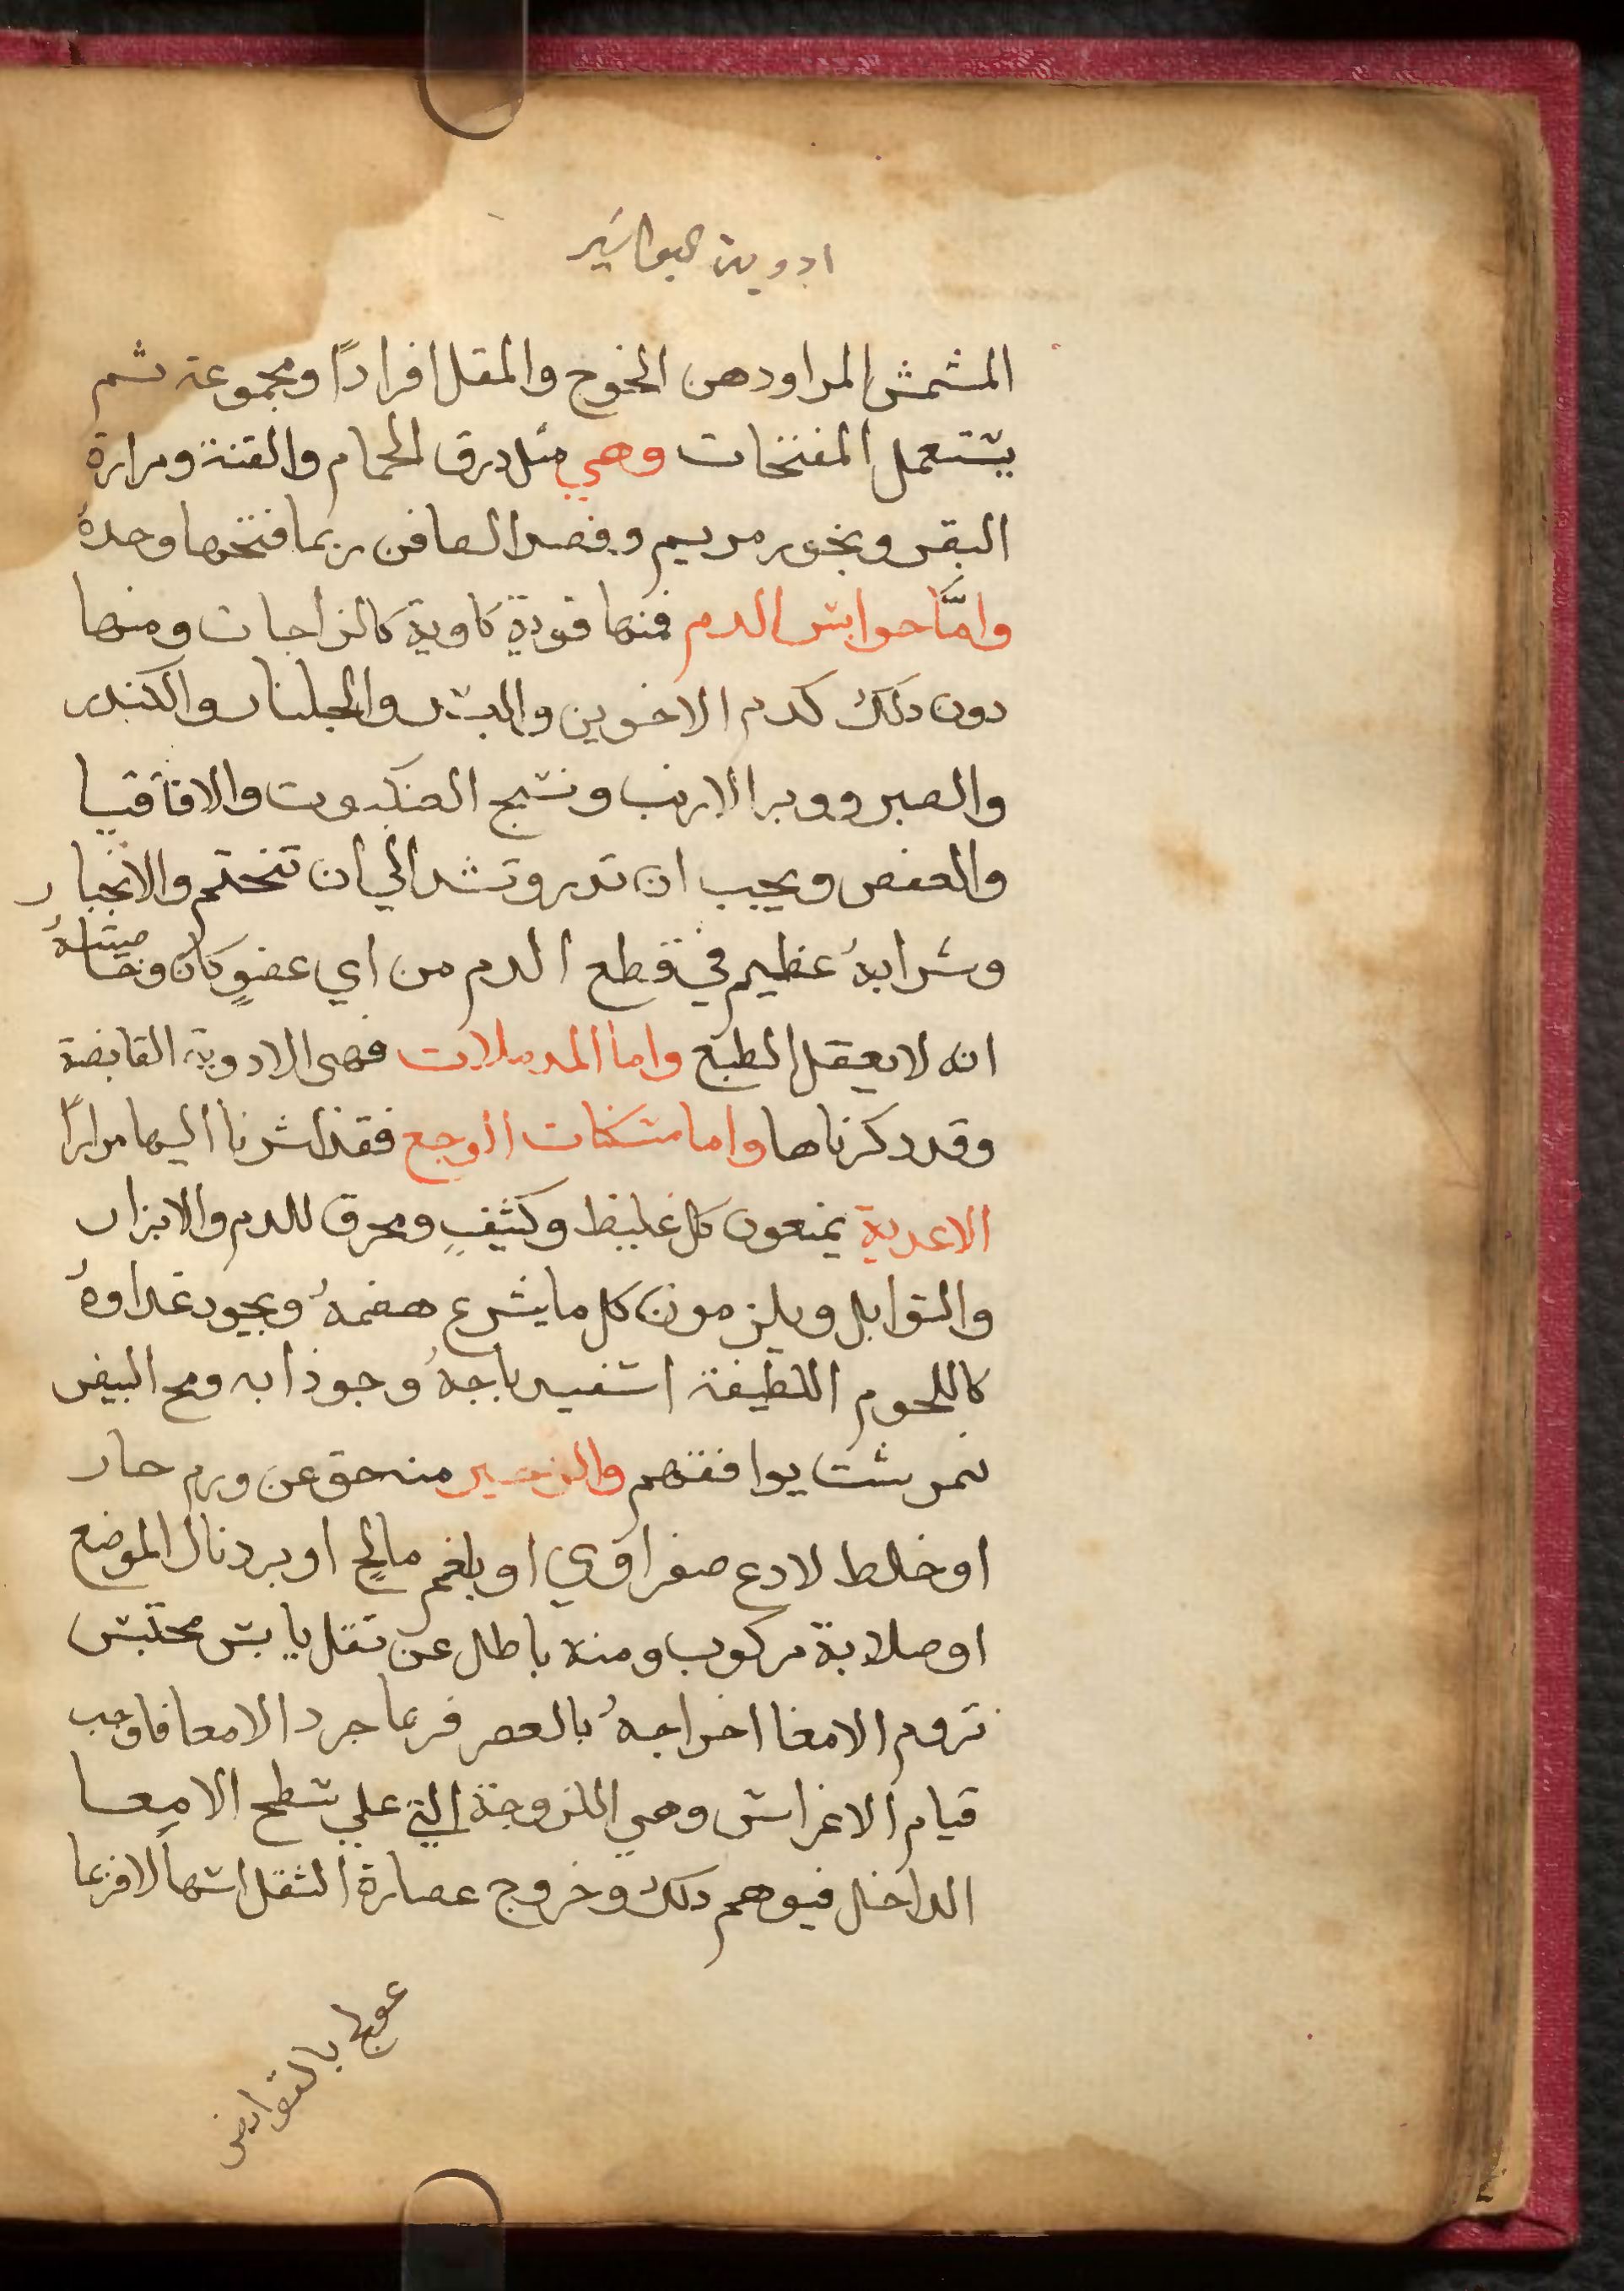 ادوية البواسير
المشمش المر اودهن الخوخ والمقل افرادًا ومجموعة ثم
يستعمل المفتحات وهي مثل درق الحمام والقنة ومرارة
البقر وبخور مريم وفصد الصافن ربما فتحها وحدهُ
وامَّا حوابس الدم فمنها قوية كاوية كالزاجات ومنها
دون دلك كدم الاخوين والبسد والجلنار والكندر
والصبر ووبر الارنب ونسج العنكبوت والاقاقيا
والعفص ويجب ان تدر وتشد الي ان تختم والانجبار
وشرابهُ عظيم في قطع الدم من اي عضوٍ كان وخاصيتهُ
انه لا يعقل الطبع واما المدملات فهى الادوية القابضة
وقد دكرناها واما مسكنات الوجع فقد اشرنا اليها مرارًا
الاعدية يمنعون كل غليظ وكثيفٍ ومحرق للدم والابزار
والتوابل ويلزمون كل ما يسرع هضمهُ ويجود غداوهُ
كاللحوم اللطيفة اسفيدباجهُ وجوذابه ومح البيض
نمرشت يوافقهم والزحير منه حق عن ورم حار
او خلط لادع صفراوي او بلغم مالحٍ او برد نال الموضع
او صلابة مركوب ومنه باطل عن ثقل يابس محتبس
تروم الامعا اخراجهُ بالعصر فربما جرد الامعا فاوجب
قيام الاغراس وهي اللزوجة التي علي سطح الامعا
الداخل فيوهم دلك وخروج عصارة الثقل اسهالًا فربما
عولج بالقوابض